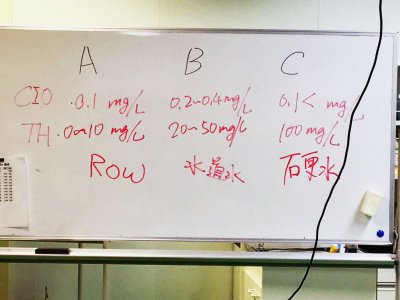 A B C
ClO 0.1 mg/L 0.2~0.4 mg/L 0.1< mg/L
TH 0~10 mg/L 20~50 mg/L 100 mg/L
ROW 水道水 硬水